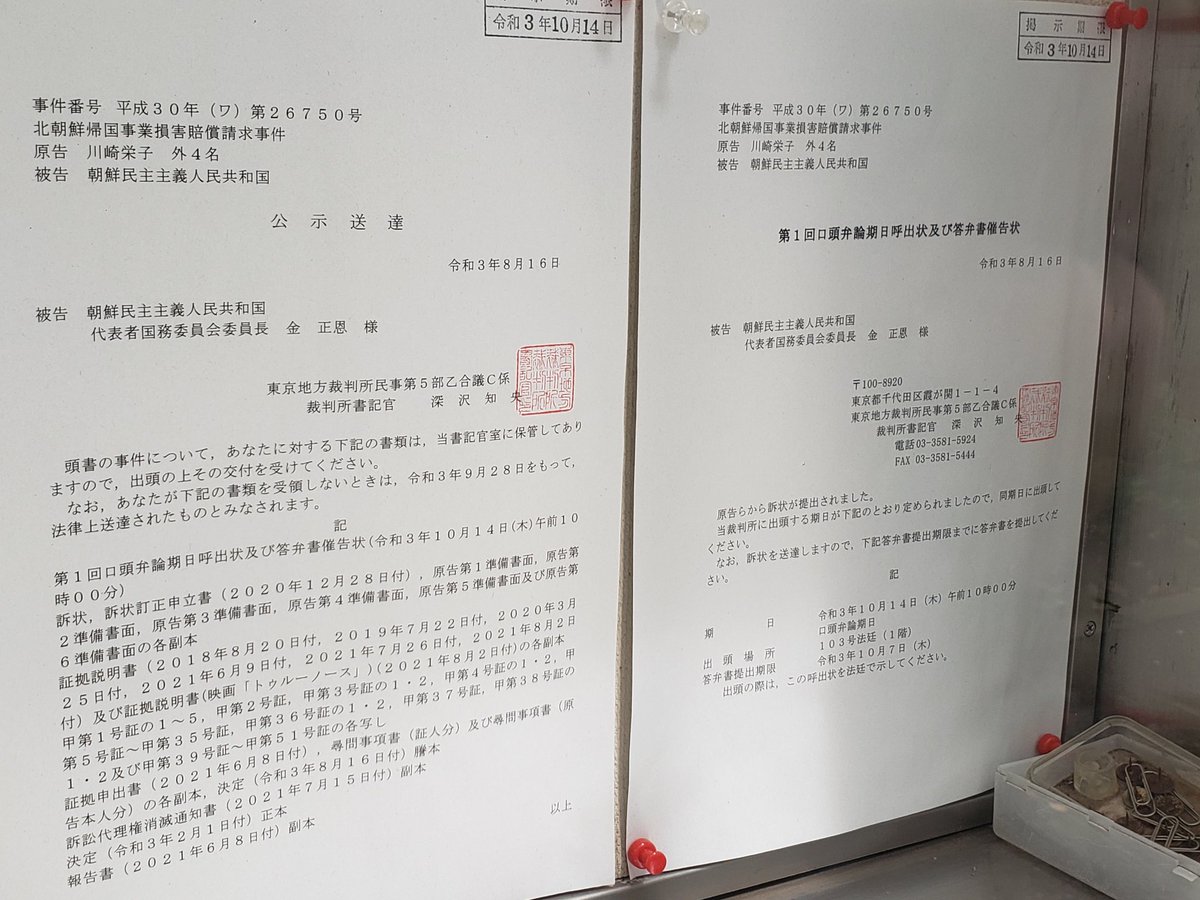 令和3年10月14日
事件番号 平成30年(ワ)第26750号
北朝鮮帰国事業損害賠償請求事件
原告 川崎栄子 外4名
被告 朝鮮民主主義人民共和国
公示送達
令和3年8月16日
被告 朝鮮民主主義人民共和国
代表者国務委員会委員長 金 正恩 様
東京地方裁判所民事第5部乙合議C係
裁判所書記官 深沢知央
頭書の事件について,あなたに対する下記の書類は,当書記官室に保管してあり
ますので,出頭の上その交付を受けてください。
なお,あなたが下記の書類を受領しないときは,令和3年9月28日をもって,
法律上送達されたものとみなされます。
記
第1回口頭弁論期日呼出状及び答弁書催告状(令和3年10月14日(木)午前10
時00分)
訴状,訴状訂正申立書(2020年12月28日付),原告第1準備書面,原告第
2準備書面,原告第3準備書面,原告第4準備書面,原告第5準備書面及び原告第
6準備書面の各副本
証拠説明書(2018年8月20日付,2019年7月22日付,2020年3月
25日付,2021年6月9日付,2021年7月26日付,2021年8月2日
付)及び証拠説明書(映画「トゥルーノース」)(2021年8月2日付)の各副本
甲第1号証の1~5,甲第2号証,甲第3号証の1・2,甲第4号証の1・2,甲
第5号証~甲第35号証,甲第36号証の1・2,甲第37号証,甲第38号証の
1・2及び甲第39号証~甲第51号証の各写し
証拠申出書(2021年6月8日付),尋問事項書(証人分)及び尋問事項書(原
告本人分)の各副本,決定(令和3年8月16日付)謄本
訴訟代理権消滅通知書(2021年7月15日付)副本
決定(令和3年2月1日付)正本
報告書(2021年6月8日付)副本
以上
掲示期限
令和3年10月14日
事件番号 平成30年(ワ)第26750号
北朝鮮帰国事業損害賠償請求事件
原告 川崎栄子 外4名
被告 朝鮮民主主義人民共和国
第1回口頭弁論期日呼出状及び答弁書催告状
令和3年8月16日
被告 朝鮮民主主義人民共和国
代表者国務委員会委員長 金 正恩 様
〒100-8920
東京都千代田区霞が関1-1-4
東京地方裁判所民事第5部乙合議C係
裁判所書記官 深沢知央
電話 03-3581-5924
FAX 03-3581-5444
原告らから訴状が提出されました。
当裁判所に出頭する期日が下記のとおり定められましたので,同期日に出頭して
ください。
なお,訴状を送達しますので,下記答弁書提出期限までに答弁書を提出してくだ
さい。
記
期日 令和3年10月14日(木)午前10時00分
口頭弁論期日
出頭場所 103号法廷(1階)
答弁書提出期限 令和3年10月7日(木)
出頭の際は,この呼出状を法廷で示してください。